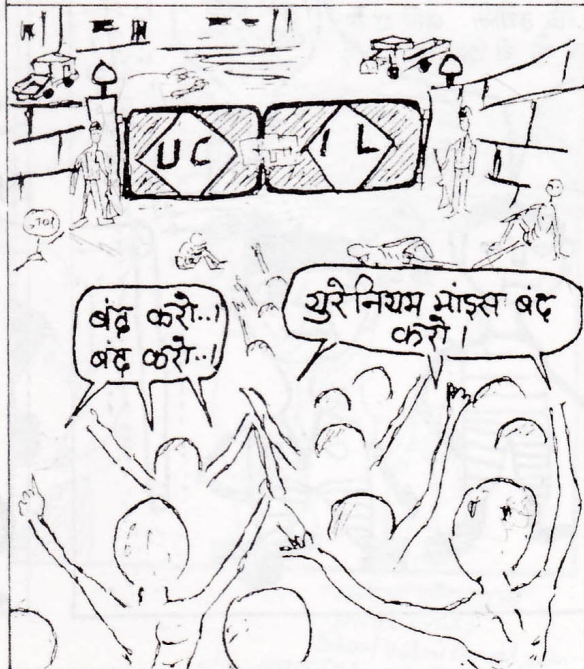 UC IL
बंद करो..!
बंद करो..!
युरेनियम मांइस बंद
करो।